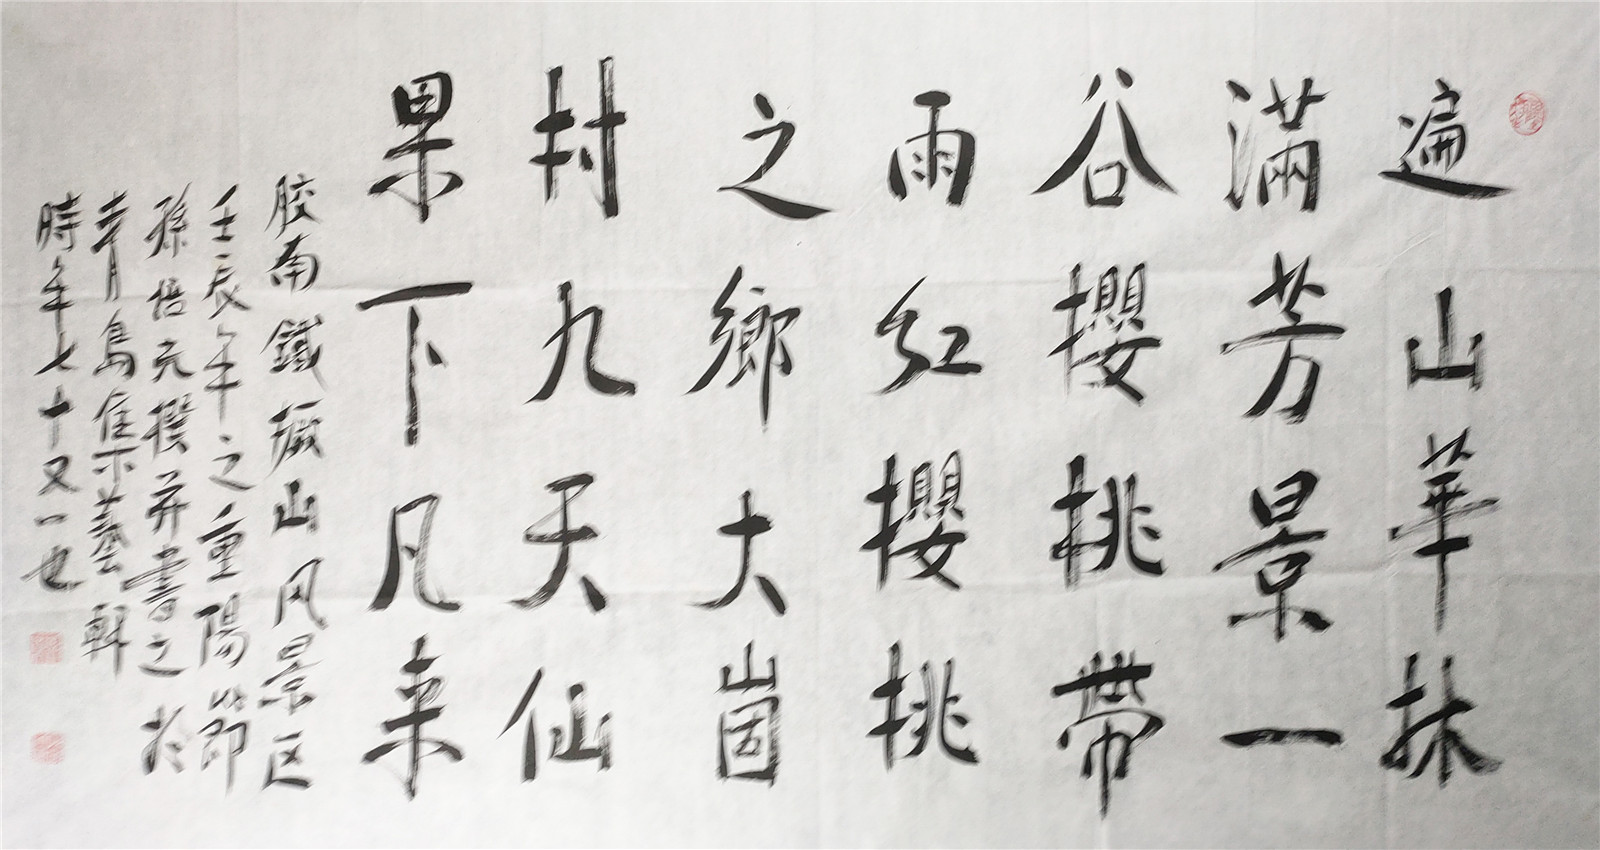 遍山華林
滿芳景一
谷櫻桃帶
雨紅櫻桃
之鄉大崮
村九天仙
果下凡來
胶南鐵橛山风景区
壬辰年之重陽節
孫悟元撰并書之於
青島集藝軒
時年七十又一也